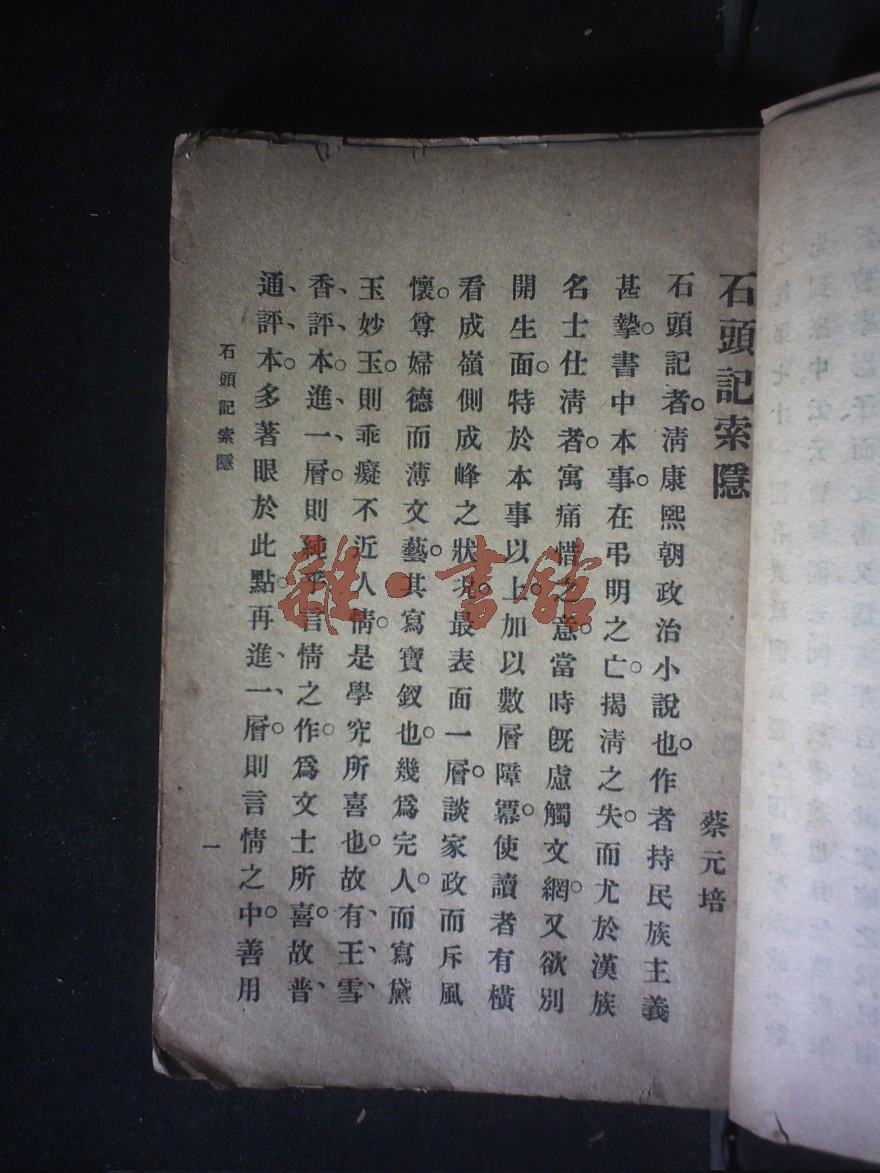 石頭記索隱
蔡元培
石頭記者。清康熙朝政治小說也。作者持民族主義
甚摯。書中本事。在弔明之亡。揭清之失。而尤於漢族
名士仕清者。寓痛惜之意。當時旣慮觸文網。又欲別
開生面。特於本事以上。加以數層障冪。使讀者有橫
看成嶺側成峰之狀況。最表面一層。談家政而斥風
懷。尊婦德而薄文藝。其寫寶釵也。幾爲完人。而寫黛
玉妙玉。則乖癡不近人情。是學究所喜也。故有王、雪、
香、評、本、進一層。則純乎言情之作。爲文士所喜。故普、
通、評、本。多著眼於此點。再進、一、層。則言情之中。善用
石頭記索隱
一
雜·書館